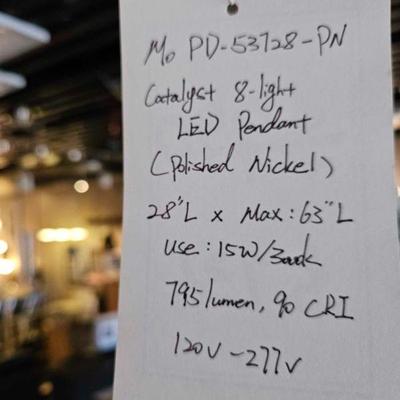 Mo PD-53728-PN
Catalyst 8-light
LED Pendant
(Polished Nickel)
28"L x Max: 63"L
Use: 15W/3000k
795 lumen, 90 CRI
120V-277V